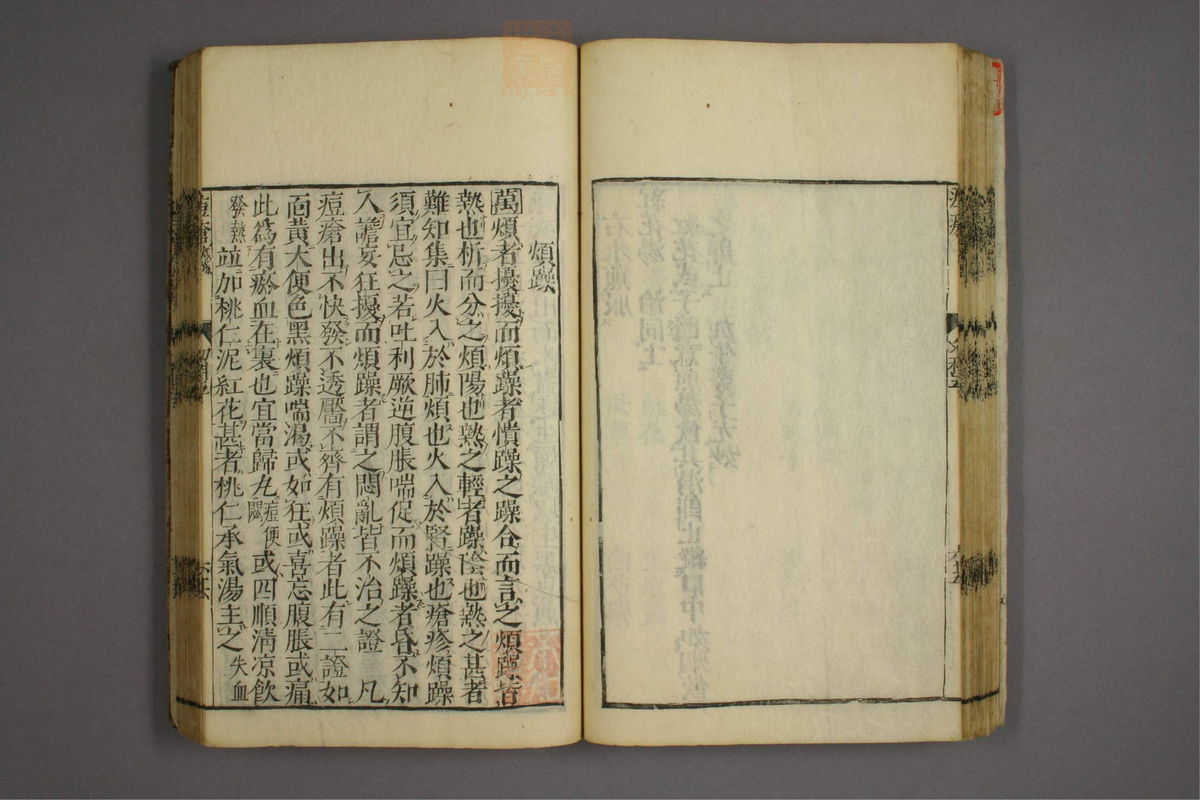 煩躁
萬煩者擾擾而煩躁者憒躁之躁合而言之煩躁皆
熱也析而分之煩陽也熱之輕者躁陰也熱之甚者
難知集曰火入於肺煩也火入於腎躁也瘡疹煩躁
須宜忌之若吐利厥逆腹脹喘促而煩躁者昏不知
人譫妄狂擾而煩躁者謂之悶亂皆不治之證 凡
痘瘡出不快發不透靨不齊有煩躁者此有二證如
面黃大便色黑煩躁喘渴或如狂或喜忘腹脹或痛
此為有瘀血在裏也宜當歸丸痘便閉或四順清凉飲
發熱並加桃仁泥紅花甚者桃仁承氣湯主之失血
痘瘡